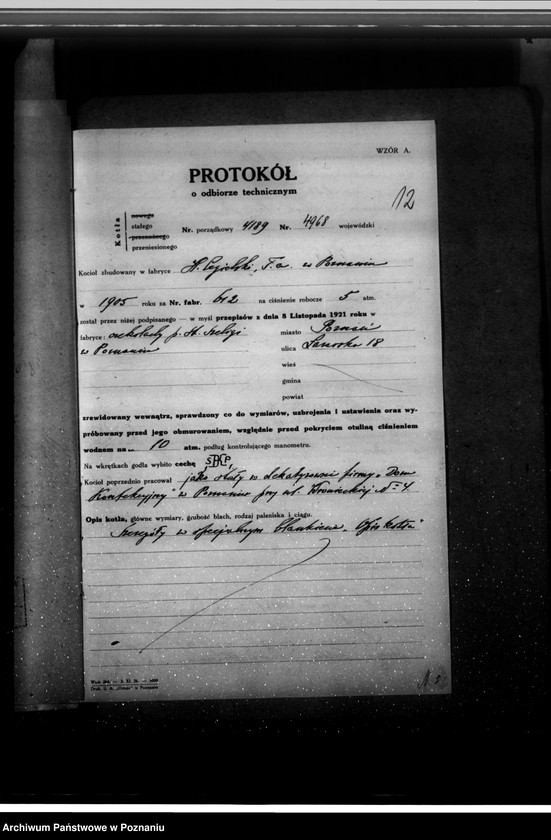 WZÓR A.
PROTOKÓŁ
o odbiorze technicznym
12
Kotła
nowego
stałego
przenośnego
przeniesionego
Nr. porządkowy 4189 Nr. 4968 wojewódzki
Kocioł zbudowany w fabryce H. Cegielski, T. a. w Poznaniu
w 1905 roku za Nr. fabr. 612 na ciśnienie robocze 5 atm.
został przez niżej podpisanego — w myśl przepisów z dnia 8 Listopada 1921 roku w
fabryce: czekolady p. St. miasto Poznań
w Poznaniu ulica 18
wieś
gmina
powiat
zrewidowany wewnątrz, sprawdzony co do wymiarów, uzbrojenia i ustawienia oraz wy-
próbowany przed jego obmurowaniem, względnie przed pokryciem otuliną ciśnieniem
wodnem na 10 atm. podług kontrolującego manometru.
Na wkrętkach godła wybito cechę
Kocioł poprzednio pracował jako stały w dekatyzowni firmy „Dom
Konfekcyjny" w Poznaniu przy ul. Wronieckiej № 4
Opis kotła, główne wymiary, grubość blach, rodzaj paleniska i ciągu.
Szczegóły w specjalnym blankiecie „Opis kotła"